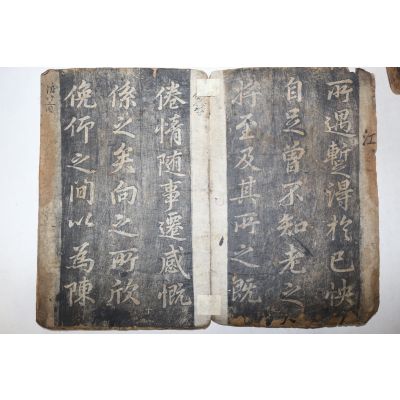 所遇蹔得於已怏
自足曾不知老之
将至及其所之既
倦情随事遷感慨
係之矣向之所欣
俛仰之間以為陳
江